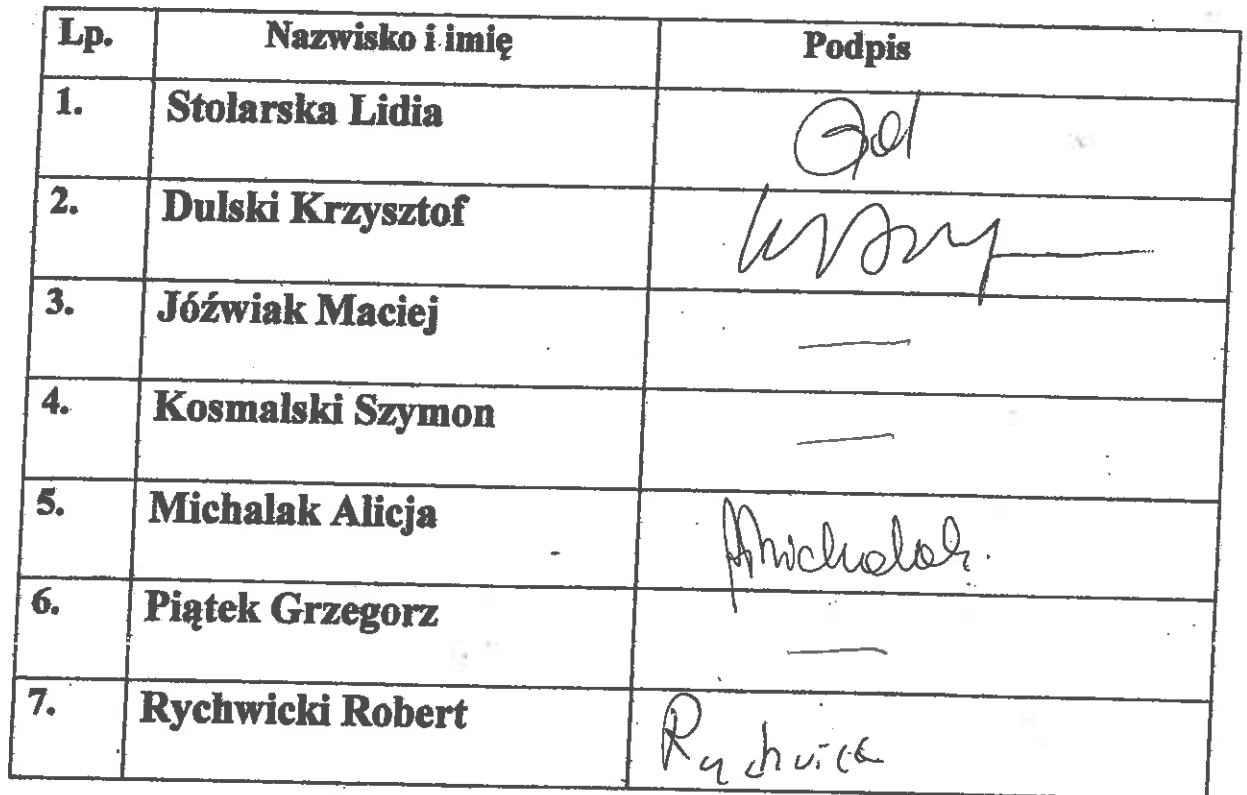 Lp. Nazwisko i imię Podpis
1. Stolarska Lidia
2. Dulski Krzysztof
3. Jóźwiak Maciej —
4. Kosmalski Szymon —
5. Michalak Alicja AMichalak.
6. Piątek Grzegorz —
7. Rychwicki Robert